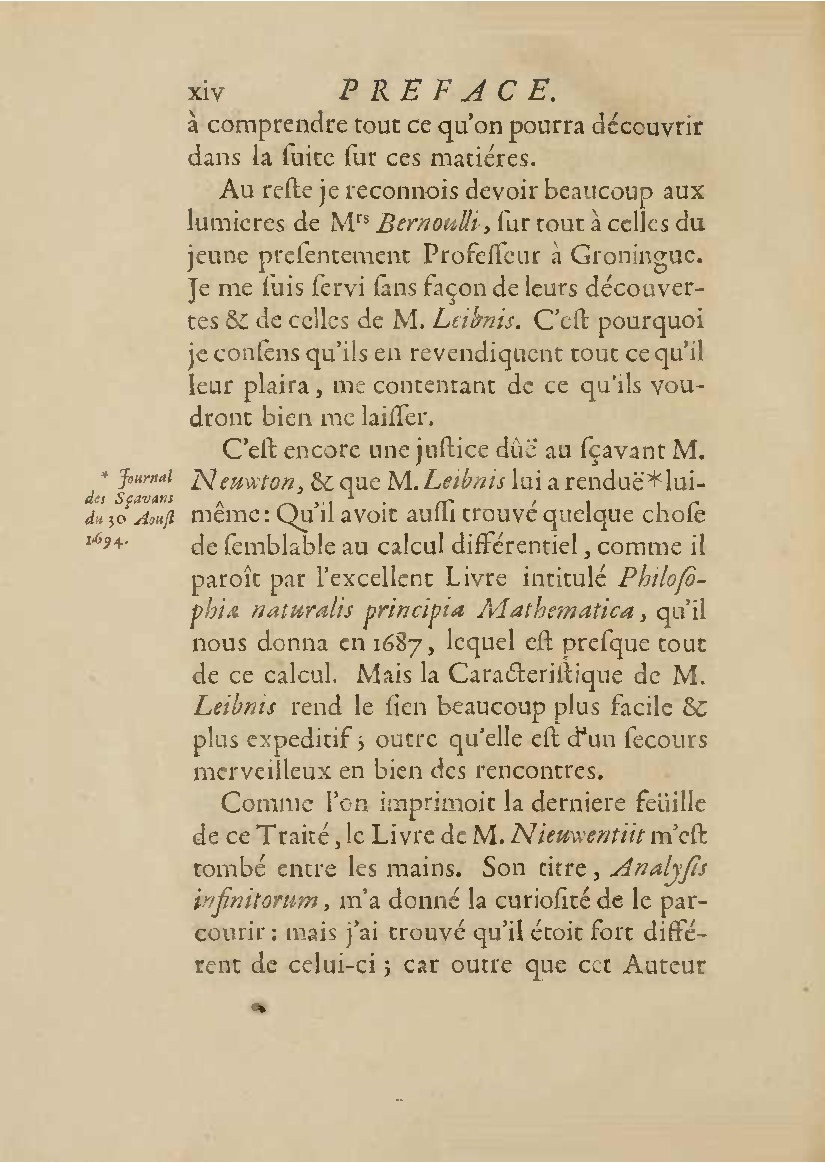 xiv PREFACE.
à comprendre tout ce qu'on pourra découvrir
dans la ſuite ſur ces matiéres.
Au reſte je reconnois devoir beaucoup aux
lumieres de Mrs Bernoulli, ſur tout à celles du
jeune preſentement Profeſſeur à Groningue.
Je me ſuis ſervi ſans façon de leurs découver-
tes & de celles de M. Leibnis. C'eſt pourquoi
je conſens qu'ils en revendiquent tout ce qu'il
leur plaira, me contentant de ce qu'ils vou-
dront bien me laiſſer.
C'eſt encore une juſtice dûë au ſçavant M.
Neuwton, & que M. Leibnis lui a renduë * lui-
même: Qu'il avoit auſſi trouvé quelque choſe
de ſemblable au calcul différentiel, comme il
paroît par l'excellent Livre intitulé Philoſo-
phia naturalis principia Mathematica, qu'il
nous donna en 1687, lequel eſt preſque tout
de ce calcul. Mais la Caracteriſtique de M.
Leibnis rend le ſien beaucoup plus facile &
plus expeditif; outre qu'elle eſt d'un ſecours
merveilleux en bien des rencontres.
* Journal
des Sçavans
du 30 Aouſt
1694.
Comme l'on imprimoit la derniere feüille
de ce Traité, le Livre de M. Nieuwentiit m'eſt
tombé entre les mains. Son titre, Analyſis
infinitorum, m'a donné la curioſité de le par-
courir: mais j'ai trouvé qu'il étoit fort diffé-
rent de celui-ci; car outre que cet Auteur